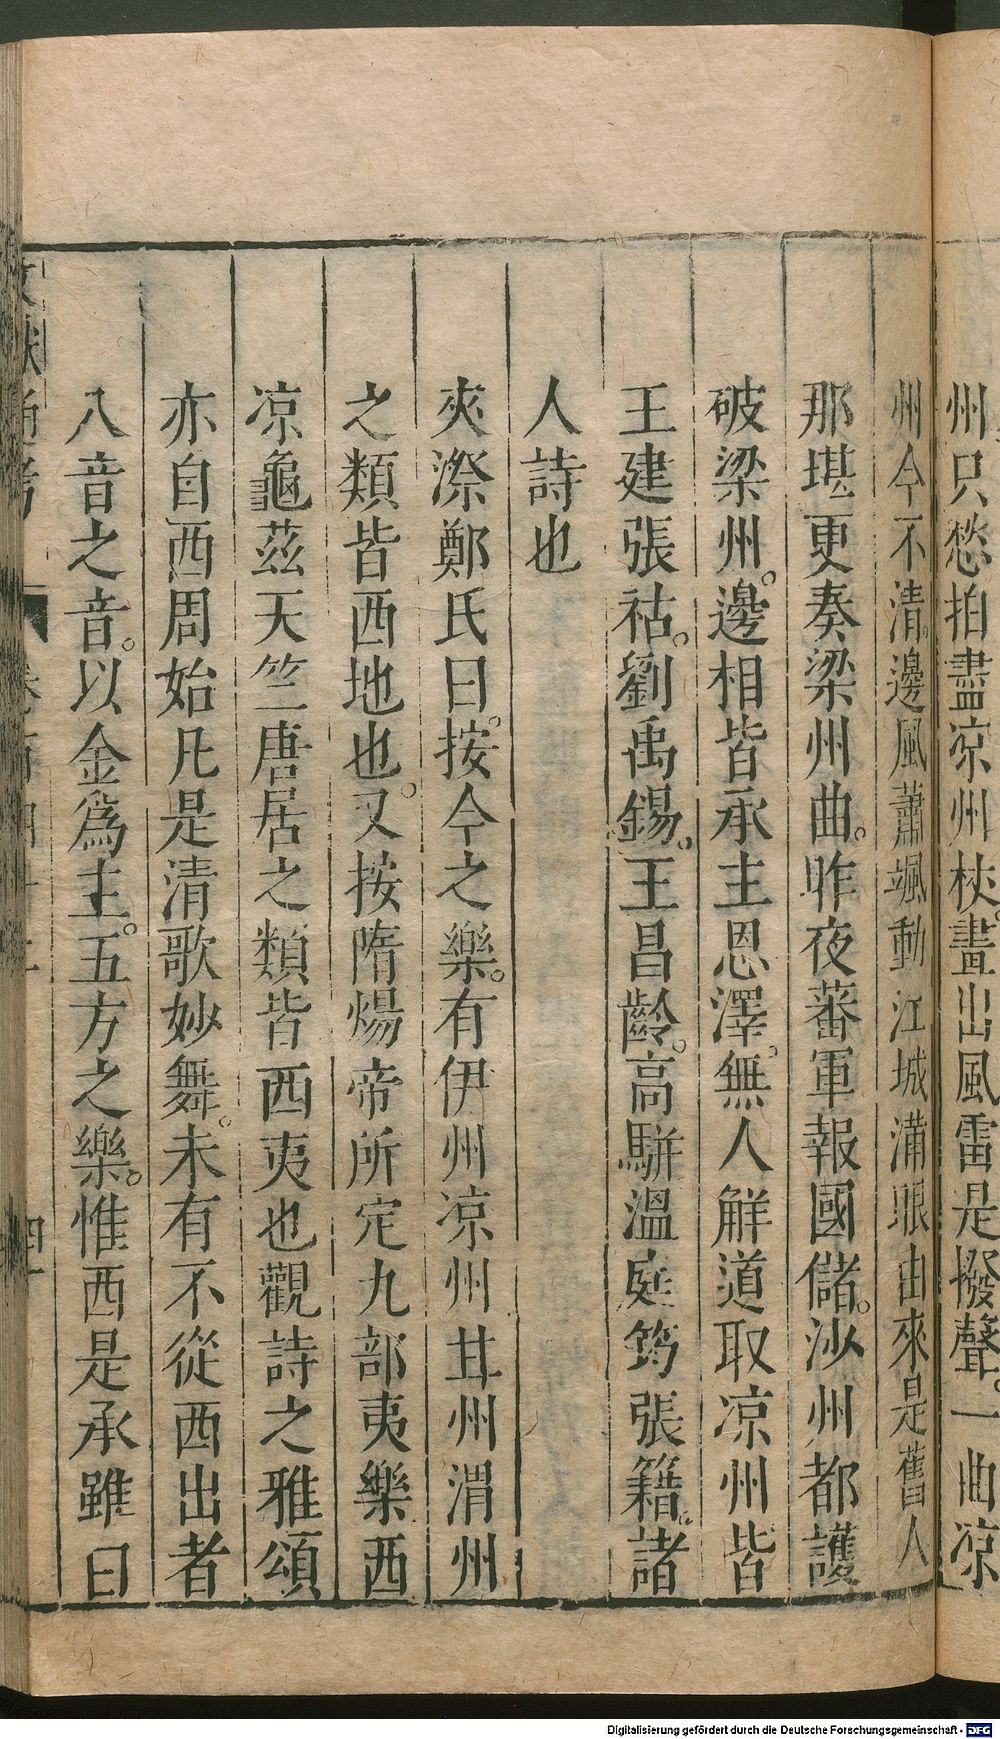 州只愁拍盡凉州杖。畫出風雷是撥聲。一曲凉
州今不清。邊風蕭颯動江城滿眼由來是舊人
那堪更奏梁州曲。昨夜蕃軍報國儲。沙州都護
破梁州。邊相皆承主恩澤。無人解道取凉州皆
王建張祜。劉禹錫。王昌齡。高駢溫庭筠張籍。諸
人詩也
夾漈鄭氏曰。按今之樂。有伊州凉州甘州渭州
之類皆西地也。又按隋煬帝所定九部夷樂西
凉龜茲天竺唐居之類皆西夷也觀詩之雅頌
亦自西周始凡是清歌妙舞。未有不從西出者
八音之音。以金爲主。五方之樂。惟西是承雖曰
文獻通考 卷百四十二
Digitalisierung gefördert durch die Deutsche Forschungsgemeinschaft - DFG